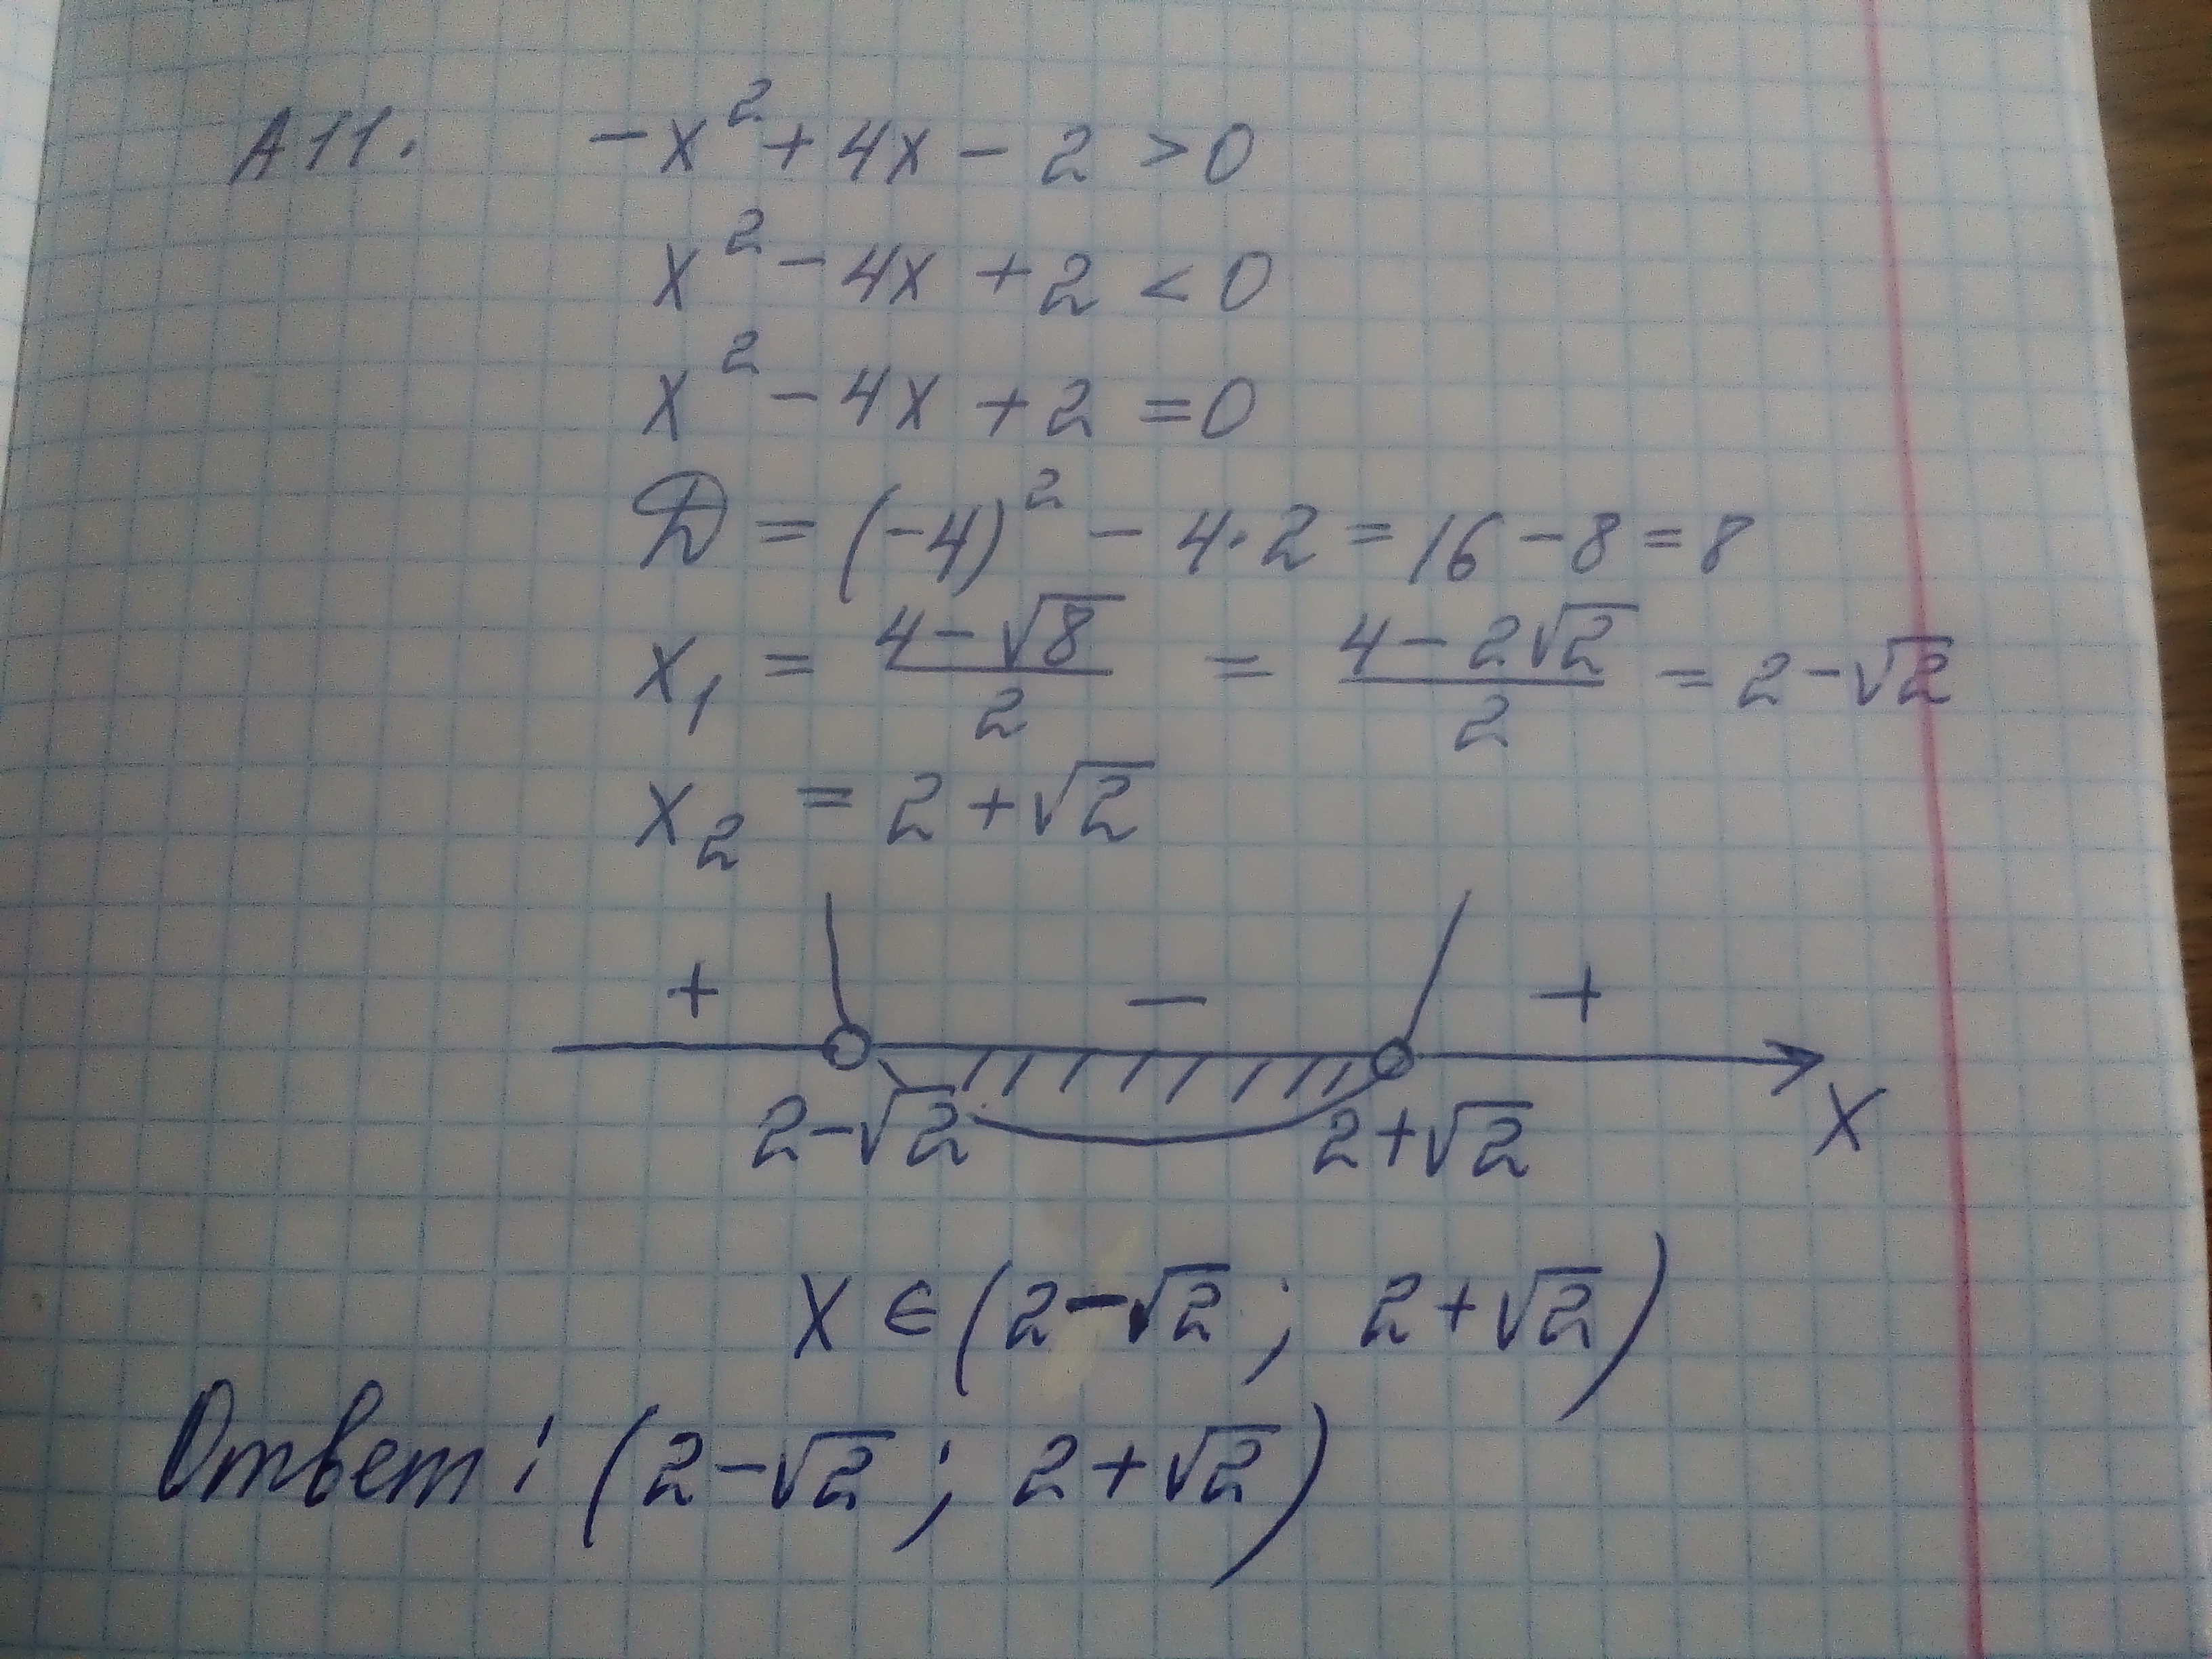 А11. -x² + 4x - 2 > 0
x² - 4x + 2 < 0
x² - 4x + 2 = 0
D = (-4)² - 4·2 = 16 - 8 = 8
x₁ = (4 - √8)/2 = (4 - 2√2)/2 = 2 - √2
x₂ = 2 + √2
+ − +
2-√2 2+√2 x
x ∈ (2-√2; 2+√2)
Ответ: (2-√2; 2+√2)